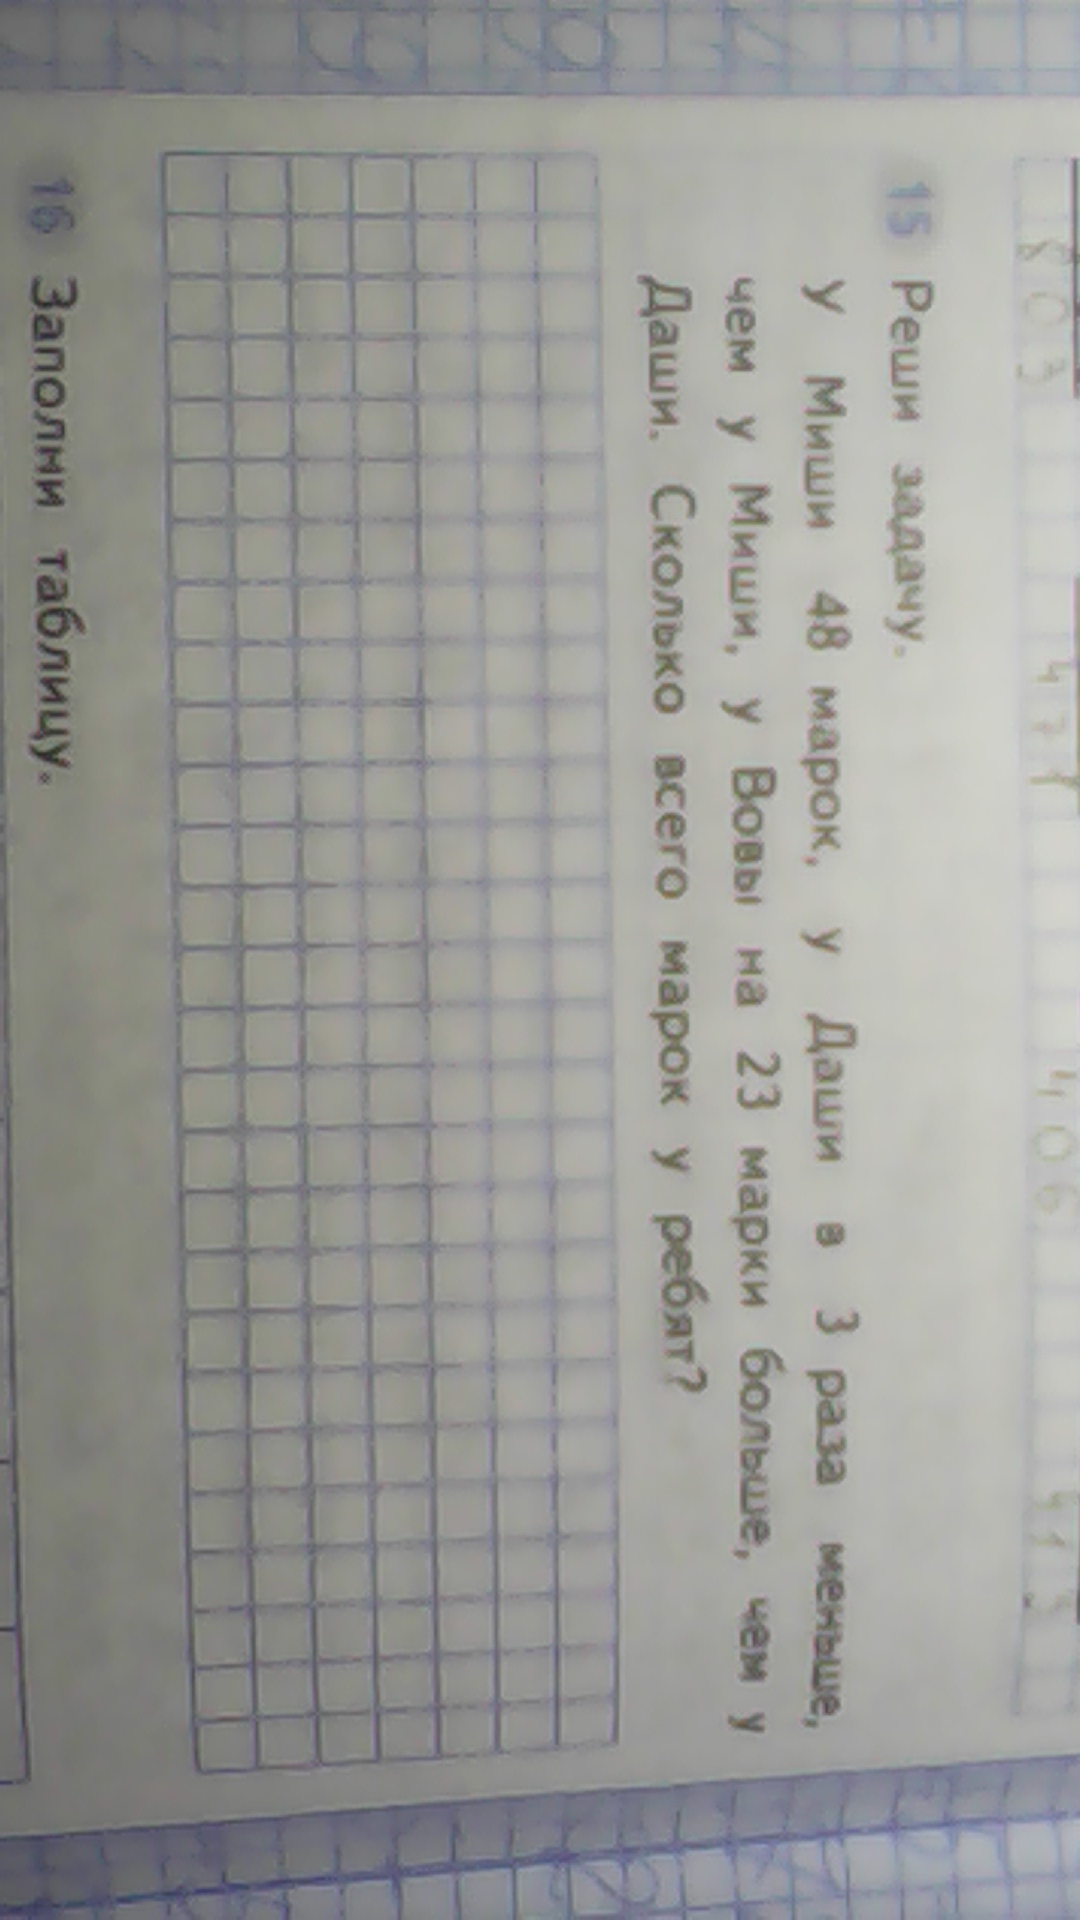 803 471 406 413
15 Реши задачу.
У Миши 48 марок, у Даши в 3 раза меньше,
чем у Миши, у Вовы на 23 марки больше, чем у
Даши. Сколько всего марок у ребят?
16 Заполни таблицу.